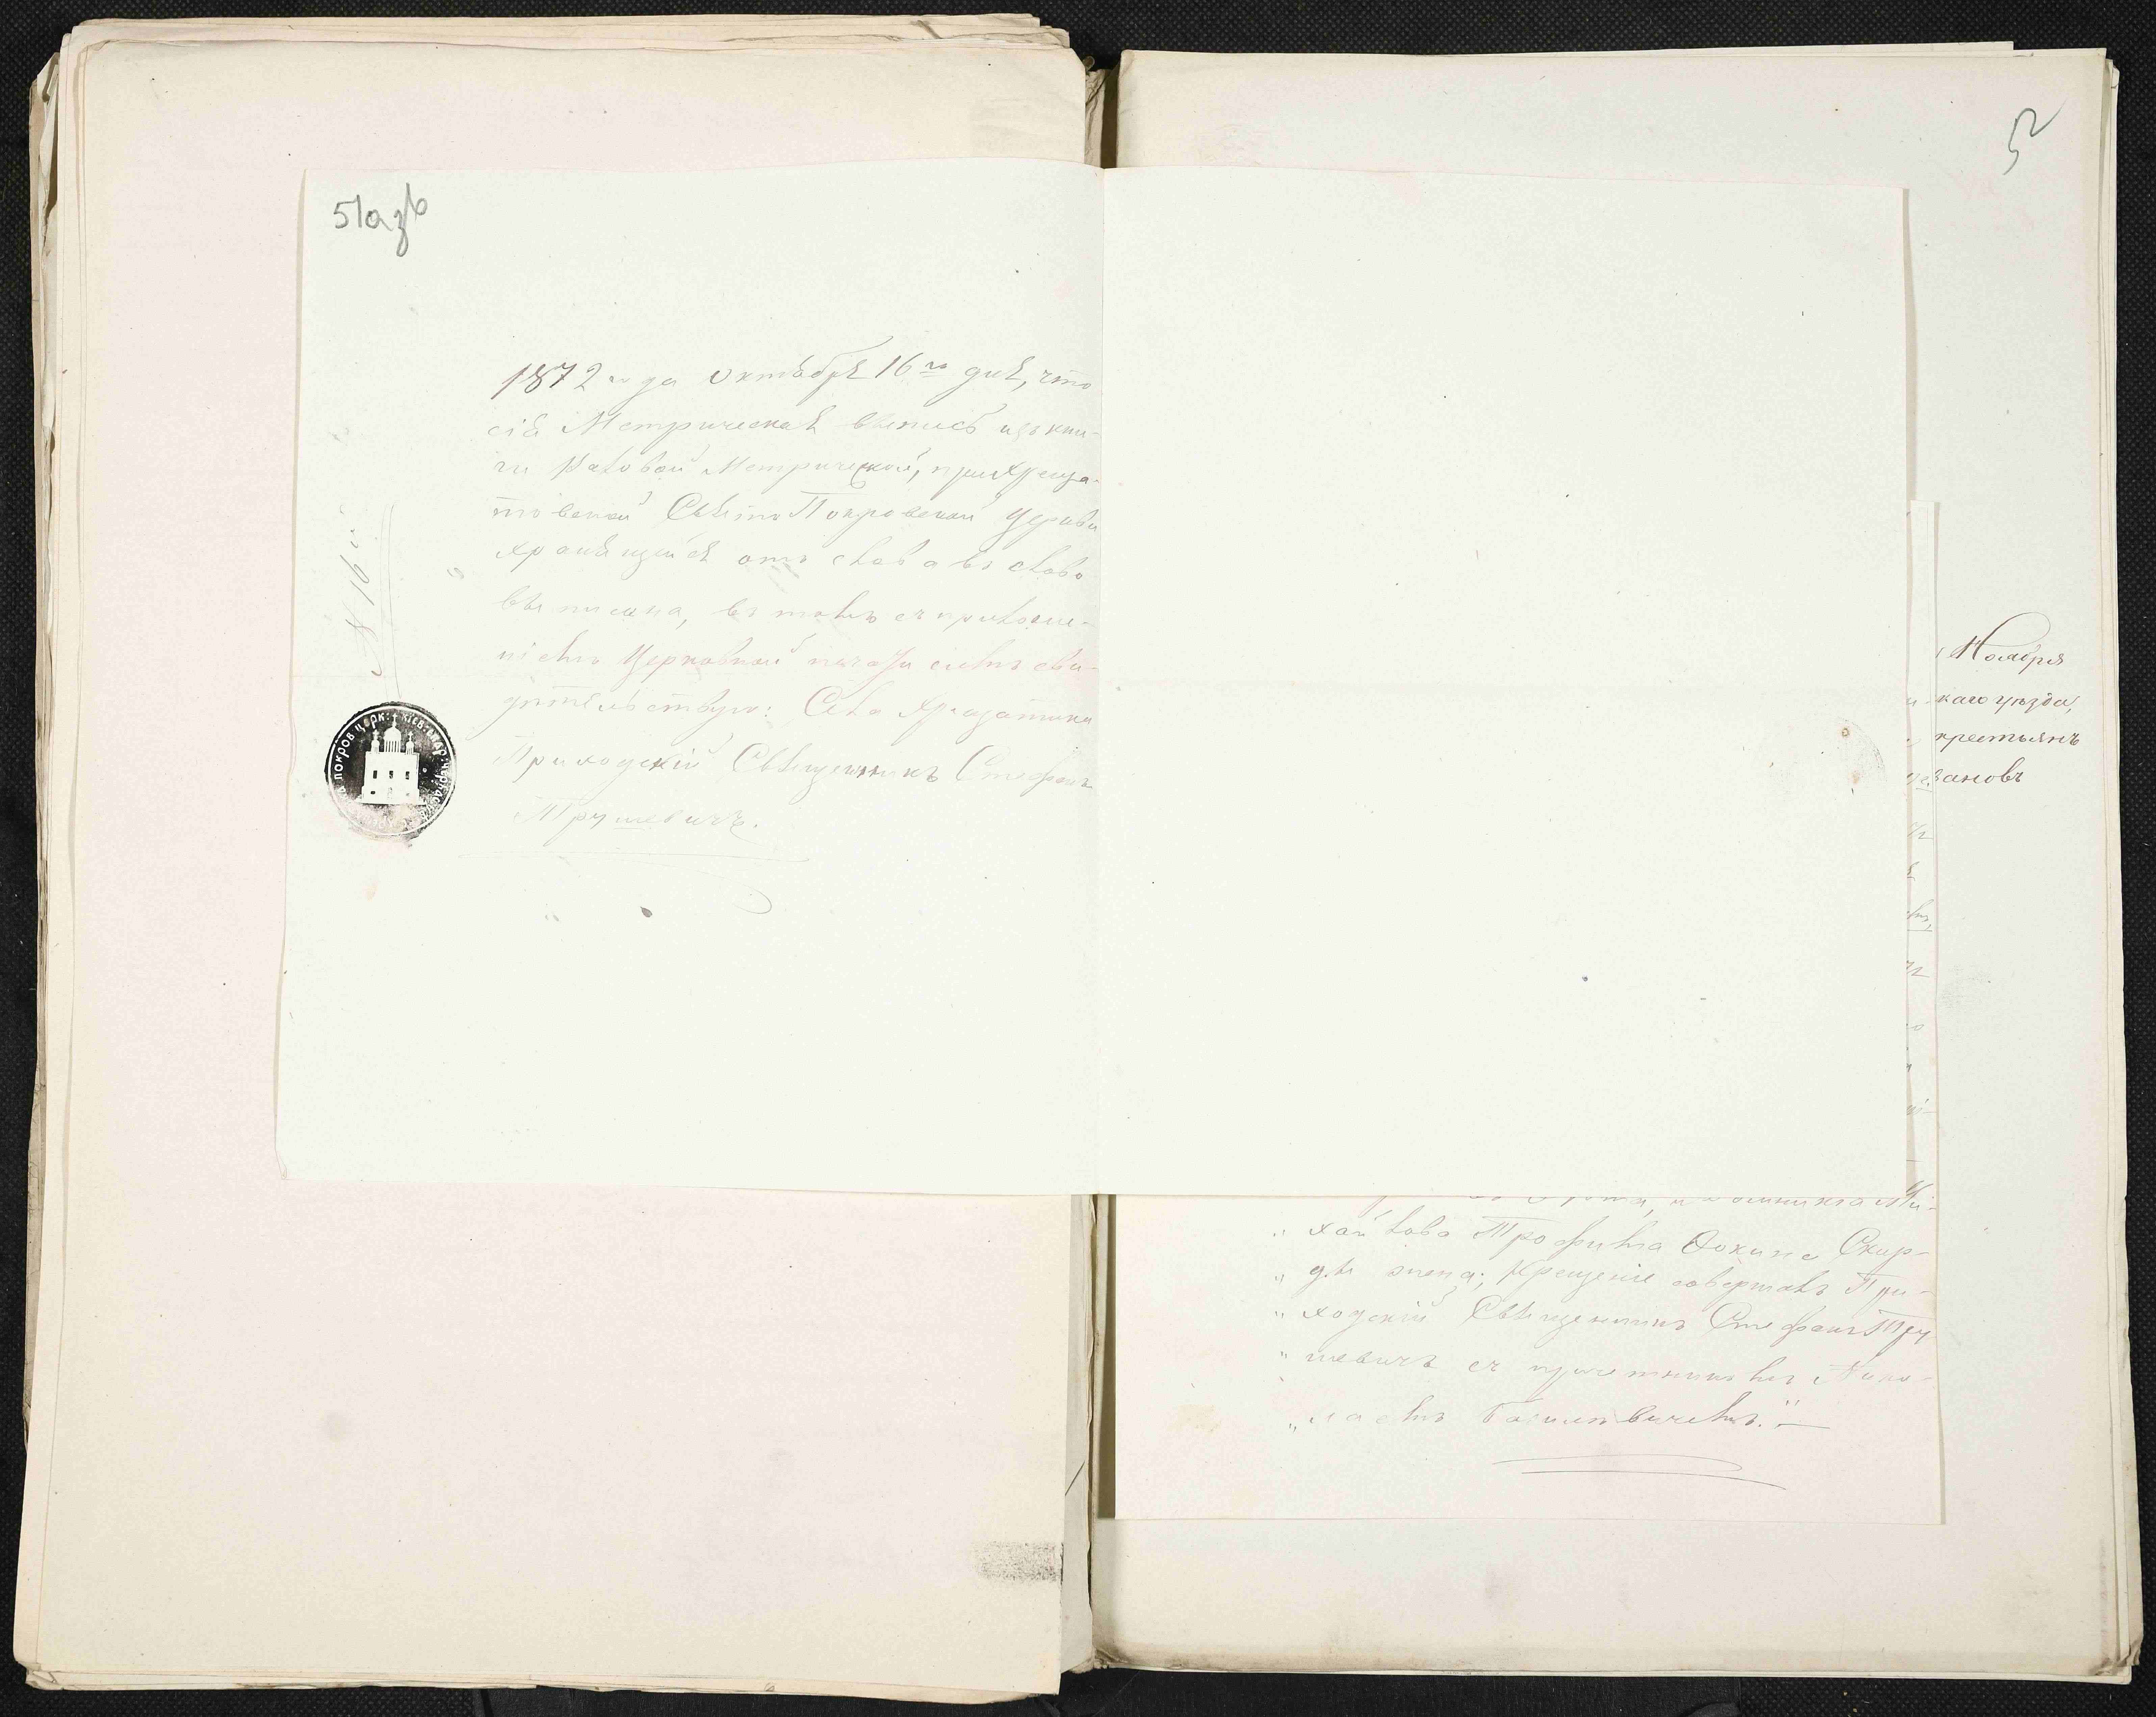 51азв
52
1872 года Октября 16го дня, что
сія Метрическая выпись изъ кни-
ги Паловой Метрической, при Хреща-
товской Свято Покровской Церкви
хранящейся отъ слова въ слово
выписана, въ томъ съ приложе-
ніемъ Церковной печати симъ сви-
дѣтельствую: Села Хрещатика
Приходскій Священникъ Стефанъ
Трушевичъ.
№ 16й
ПОКРОВ ЦЕРК: КІЕВ:
Ноября
каго уѣзда,
крестьянъ
вановъ
Ми-
„ хайлова Трофима Фокина Скир-
„ ды жена; Крещеніе совершалъ При-
„ ходскій Священникъ Стефанъ Тру
„ шевичъ съ причетникомъ Нико-
„ лаемъ Базилевичемъ."—